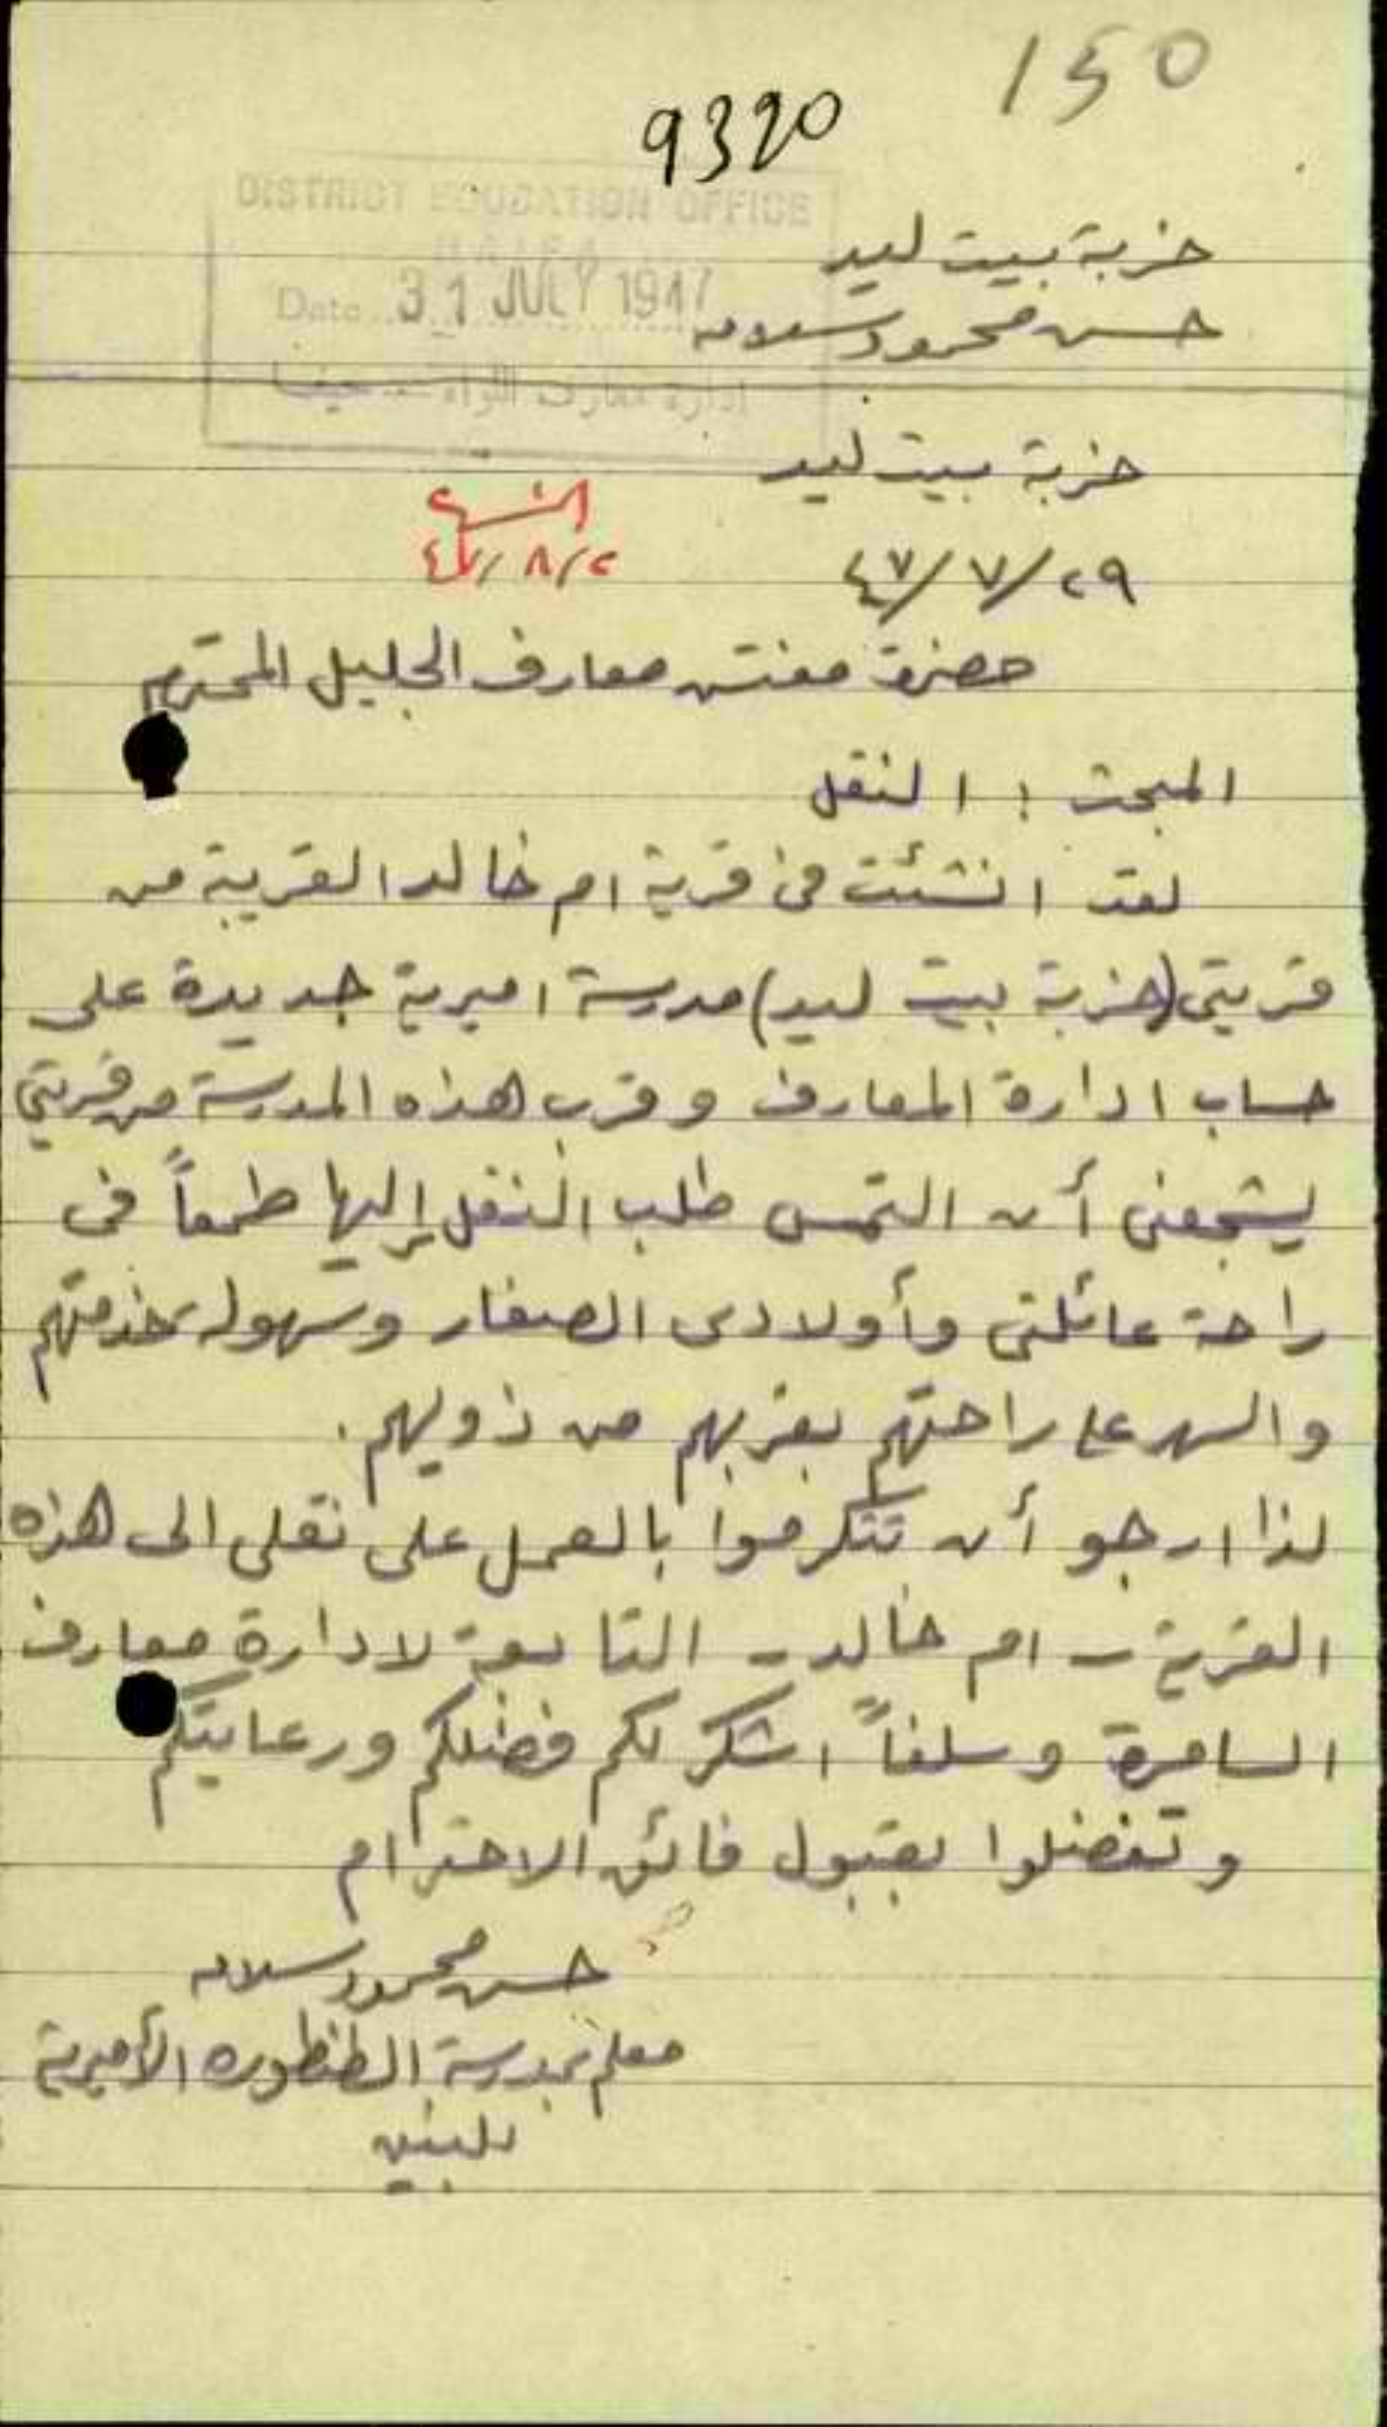 150
9320
DISTRICT EDUCATION OFFICE
HAIFA
Date 31 JULY 1947
ادارة معارف اللواء — حيفا
خربة بيت ليد
حسن محمود سلامه
خربة بيت ليد
٢٩/٧/٤٧
٢/٨/٤٧
حضرة مفتش معارف الجليل المحترم
المبحث : النقل
لقد انشئت في قرية ام خالد القريبة من
قريتي (خربة بيت ليد) مدرسة اميرية جديدة على
حساب ادارة المعارف وقرب هذه المدرسة من قريتي
يشجعني أن التمس طلب النقل إليها طمعاً في
راحة عائلتي وأولادي الصغار وسهولة خدمتهم
والسهر على راحتهم بقربهم من ذويهم.
لذا ارجو أن تتكرموا بالعمل على نقلي الى هذه
القرية – ام خالد – التابعة لادارة معارف
السامرة وسلفاً اشكر لكم فضلكم ورعايتكم
وتفضلوا بقبول فائق الاحترام
حسن محمود سلامه
معلم بمدرسة الطنطوره الأميرية
للبنين